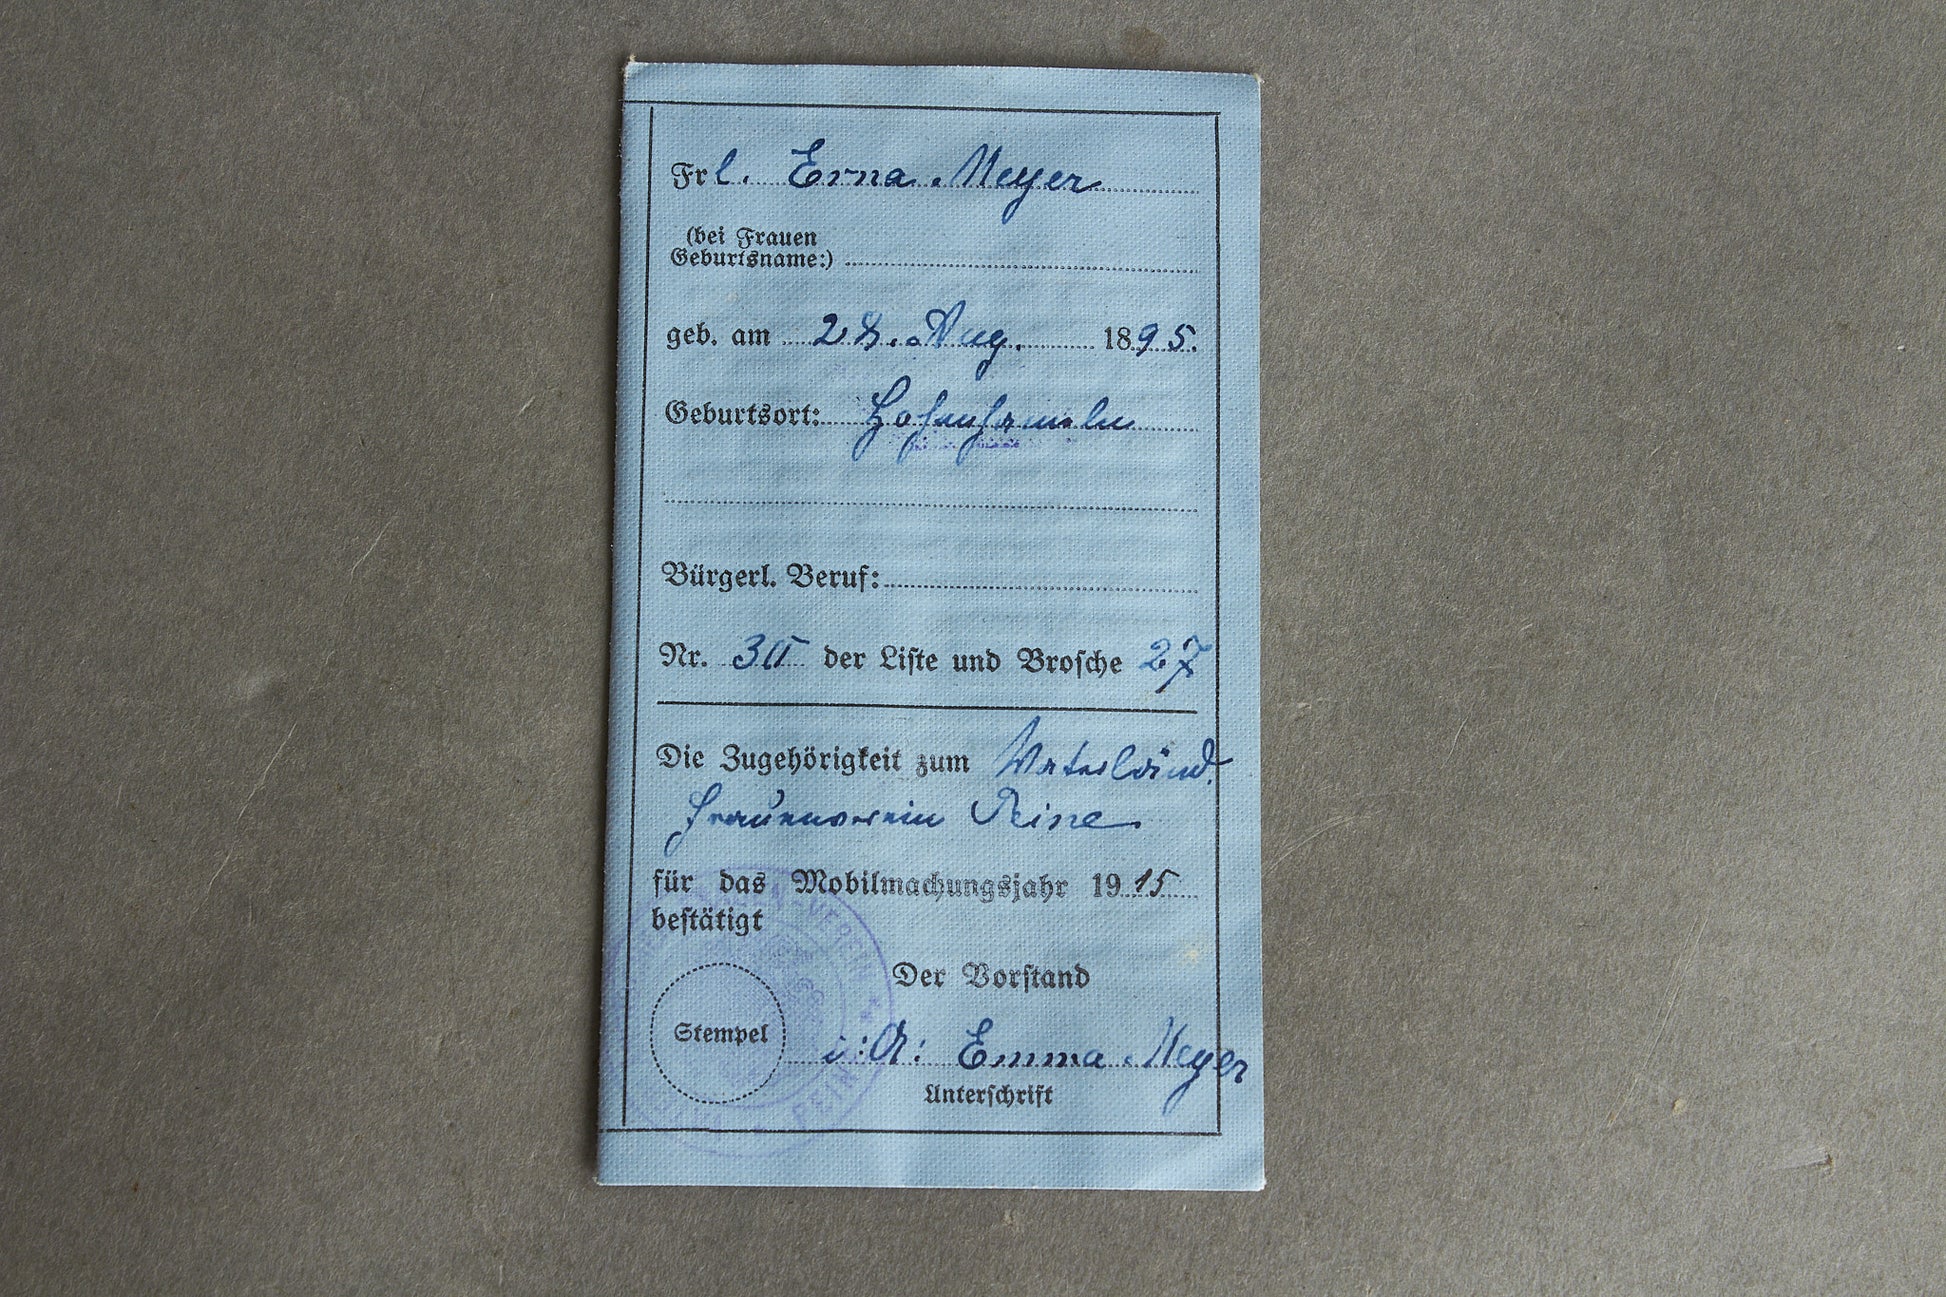 Frl. Erna Meyer
(bei Frauen
Geburtsname:)
geb. am 28. Aug. 1895.
Geburtsort: Hohenhameln
Bürgerl. Beruf:
Nr. der Liste und Brosche 27
Die Zugehörigkeit zum Vaterländ.
Frauenverein Peine
für das Mobilmachungsjahr 1915
bestätigt
Der Vorstand
Stempel
i. A. Emma Meyer
Unterschrift
VEREIN